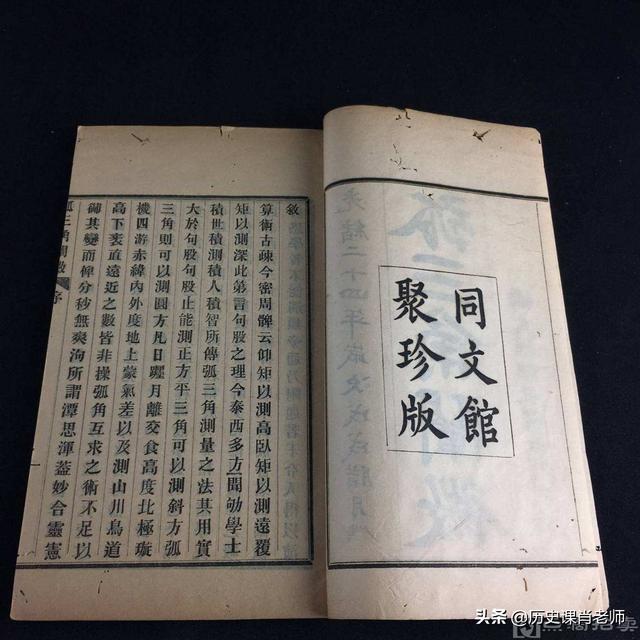 同文館
聚珍版
光緒二十四年歲次戊戌臘月
敘
算術古疎今密周髀云仰矩以測高臥矩以測遠覆
矩以測深此第言句股之理今泰西多方聞劬學士
積世積測積人積智所傳弧三角測量之法其用實
大於句股句股止能測正方平三角可以測斜方弧
三角則可以測圓方凡日躔月離交食高度北極璇
機四游赤緯內外度地上蒙氣差以及測山川鳥道
高下袤直遠近之數皆非操弧角互求之術不足以
御其變而俾分秒無爽洵所謂潭思渾蓋妙合靈憲
三角闡微 序
头条 @历史课肖老师